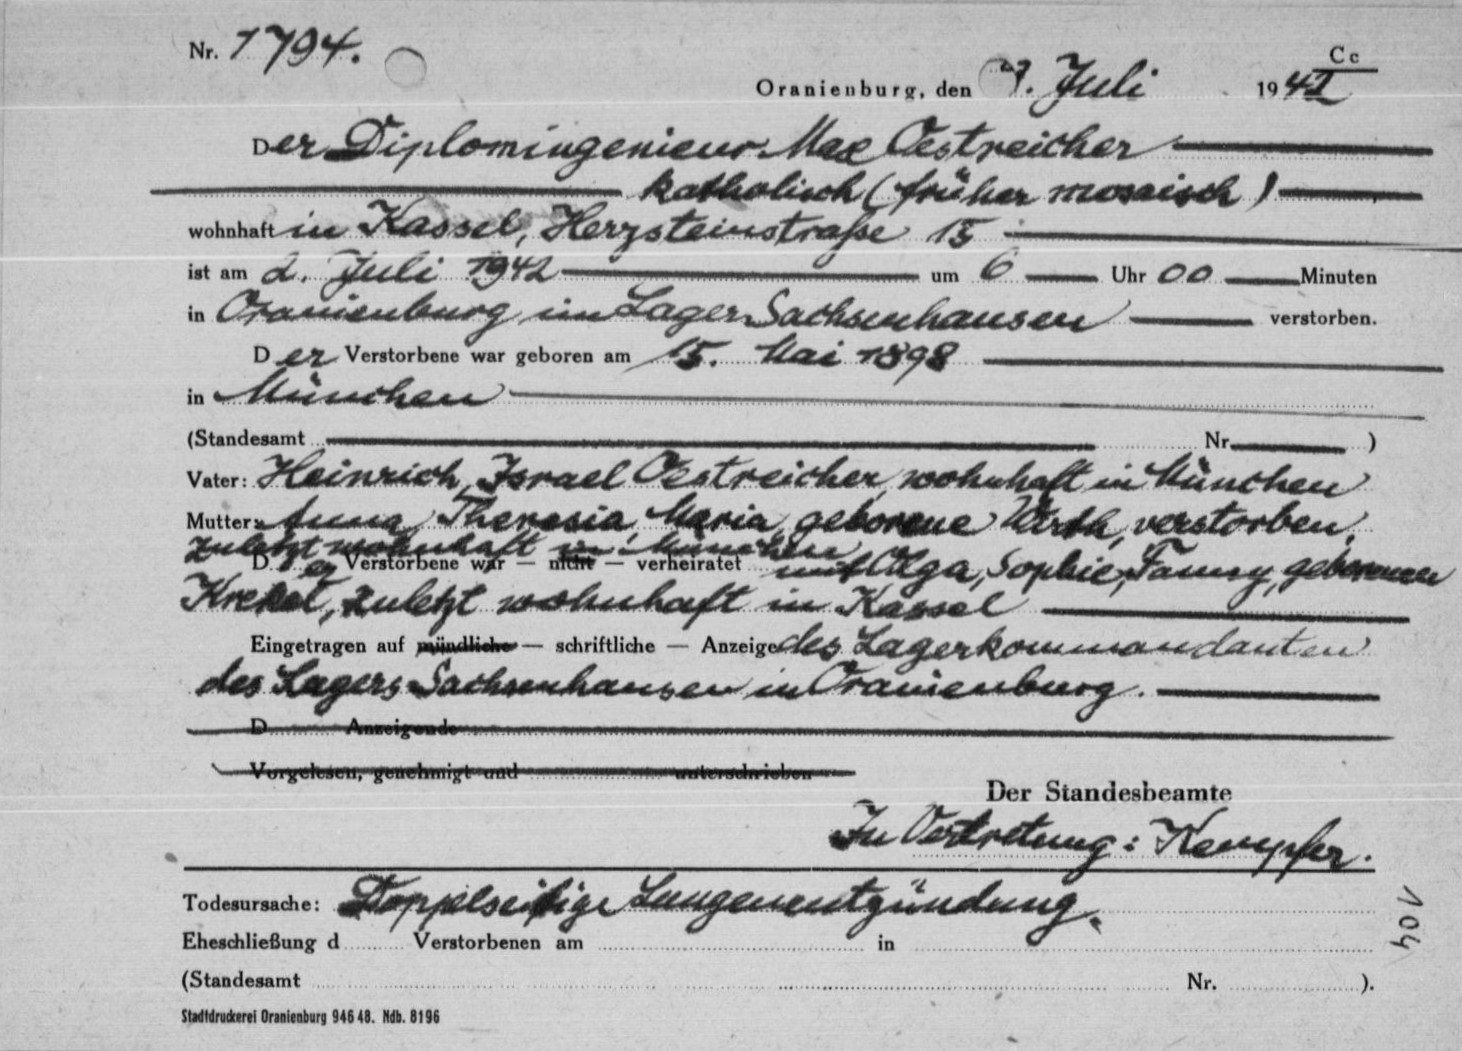 Nr. 1794.
Cc
Oranienburg, den 7. Juli 1942
Der Diplomingenieur Max Oestreicher
katholisch (früher mosaisch)
wohnhaft in Kassel, Herzsteinstraße 15
ist am 2. Juli 1942 um 6 Uhr 00 Minuten
in Oranienburg im Lager Sachsenhausen verstorben.
Der Verstorbene war geboren am 15. Mai 1898
in München
(Standesamt Nr. )
Vater: Heinrich, Israel Oestreicher, wohnhaft in München
Mutter: Anna, Theresia, Maria, geborene Wirth, verstorben,
zuletzt wohnhaft in München
Der Verstorbene war — nicht — verheiratet mit Olga, Sophie, Fanny, geborenen
Krekel, zuletzt wohnhaft in Kassel
Eingetragen auf mündliche — schriftliche — Anzeige des Lagerkommandanten
des Lagers Sachsenhausen in Oranienburg.
D Anzeigende
Vorgelesen, genehmigt und unterschrieben
Der Standesbeamte
In Vertretung: Kempfer.
Todesursache: Doppelseitige Lungenentzündung.
104
Eheschließung d Verstorbenen am in
(Standesamt Nr. ).
Stadtdruckerei Oranienburg 946 48. Ndb. 8196